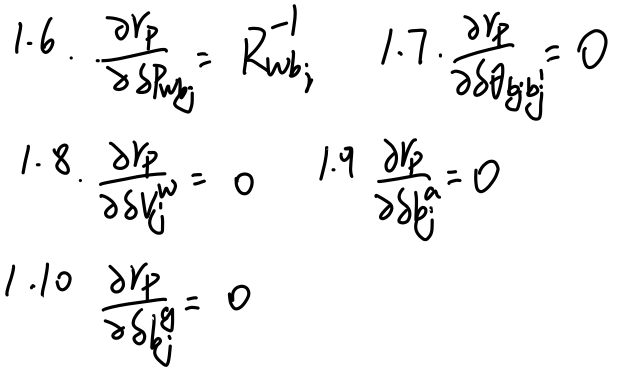 1.6. ∂r_p/∂δP_{wb_j} = R_{wb_i}^{-1}    1.7. ∂r_p/∂δθ_{b_jb_j'} = 0
1.8. ∂r_p/∂δV_j^w = 0    1.9 ∂r_p/∂δb_j^a = 0
1.10 ∂r_p/∂δb_j^g = 0